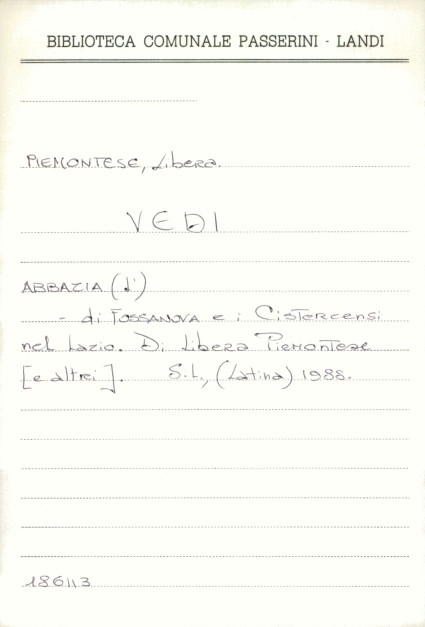 BIBLIOTECA COMUNALE PASSERINI - LANDI
PIEMONTESE, Libera.
VEDI
ABBAZIA (L')
- di FOSSANOVA e i Cistercensi
nel Lazio. Di Libera Piemontese
[e altri]. S.l., (Latina) 1988.
186113